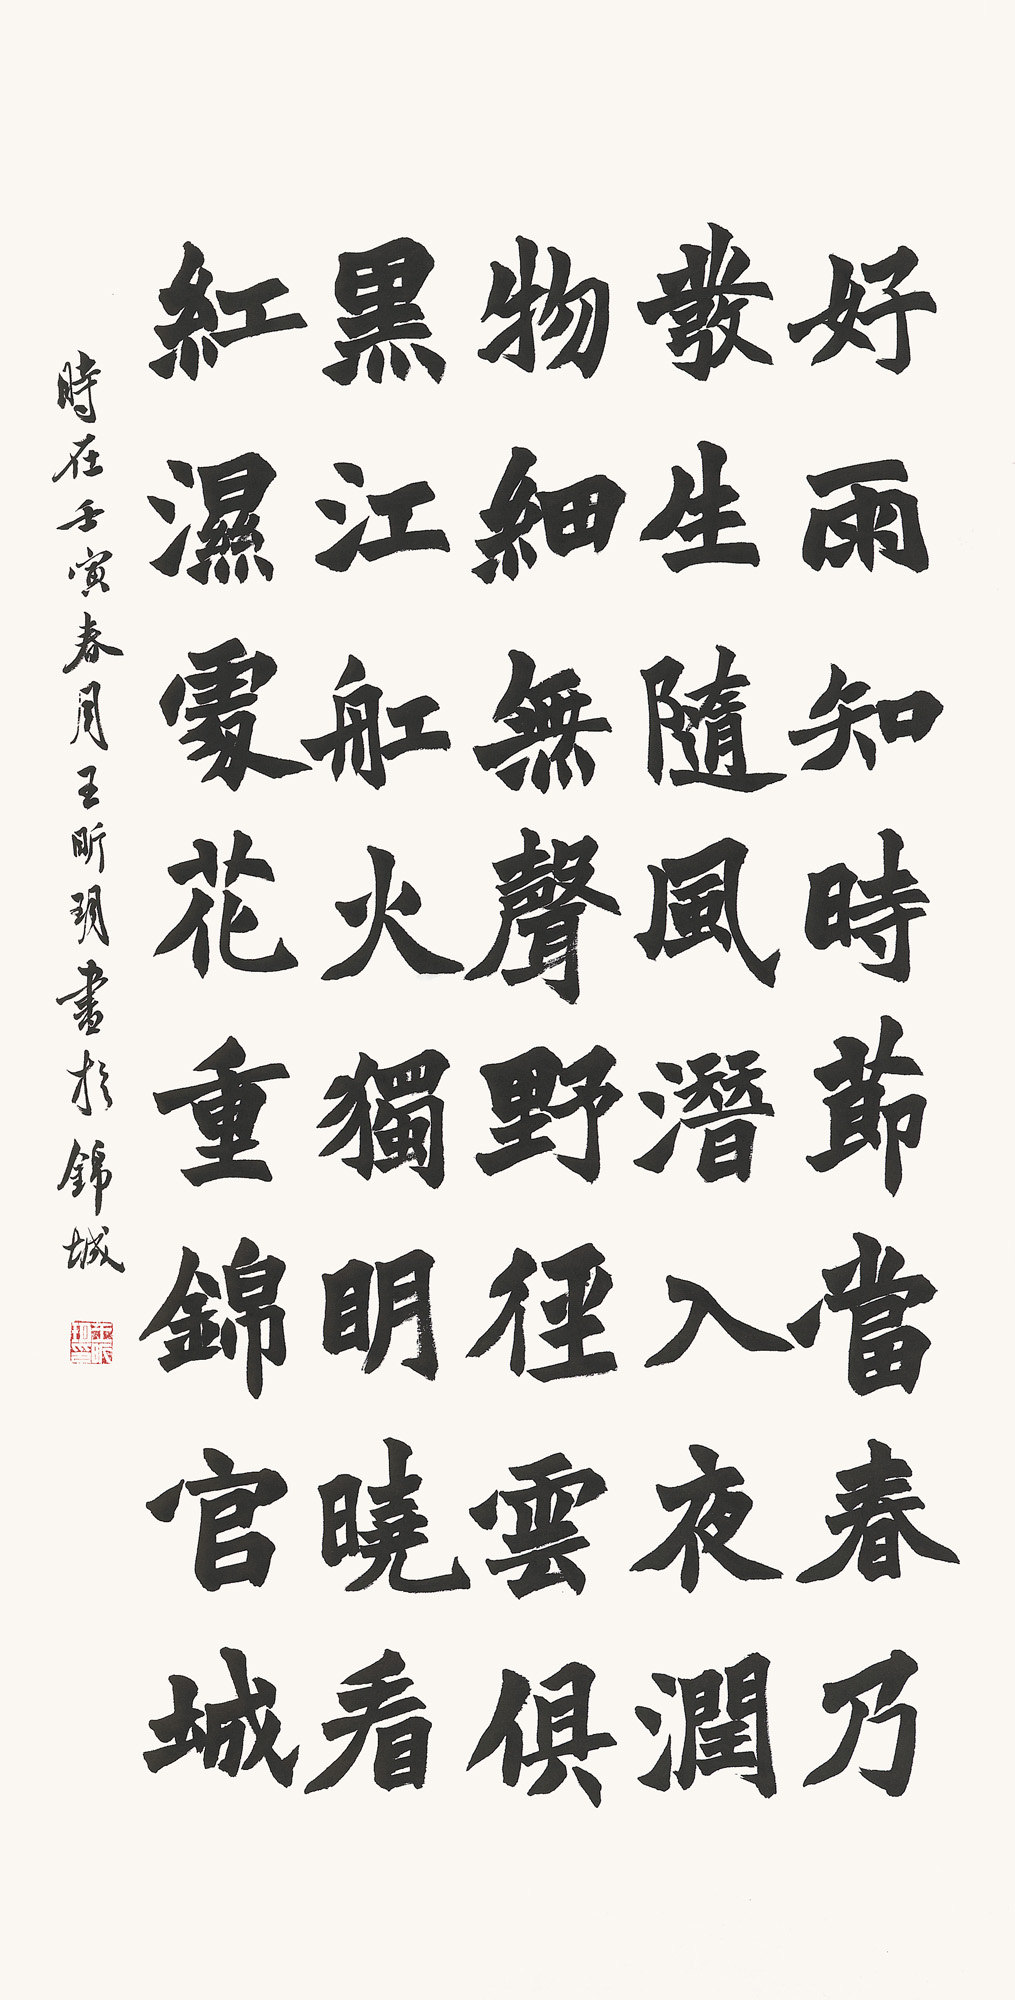 好雨知時節當春乃
發生隨風潛入夜潤
物細無聲野徑雲俱
黑江舡火獨明曉看
紅濕處花重錦官城
時在壬寅春月王昕玥書於錦城